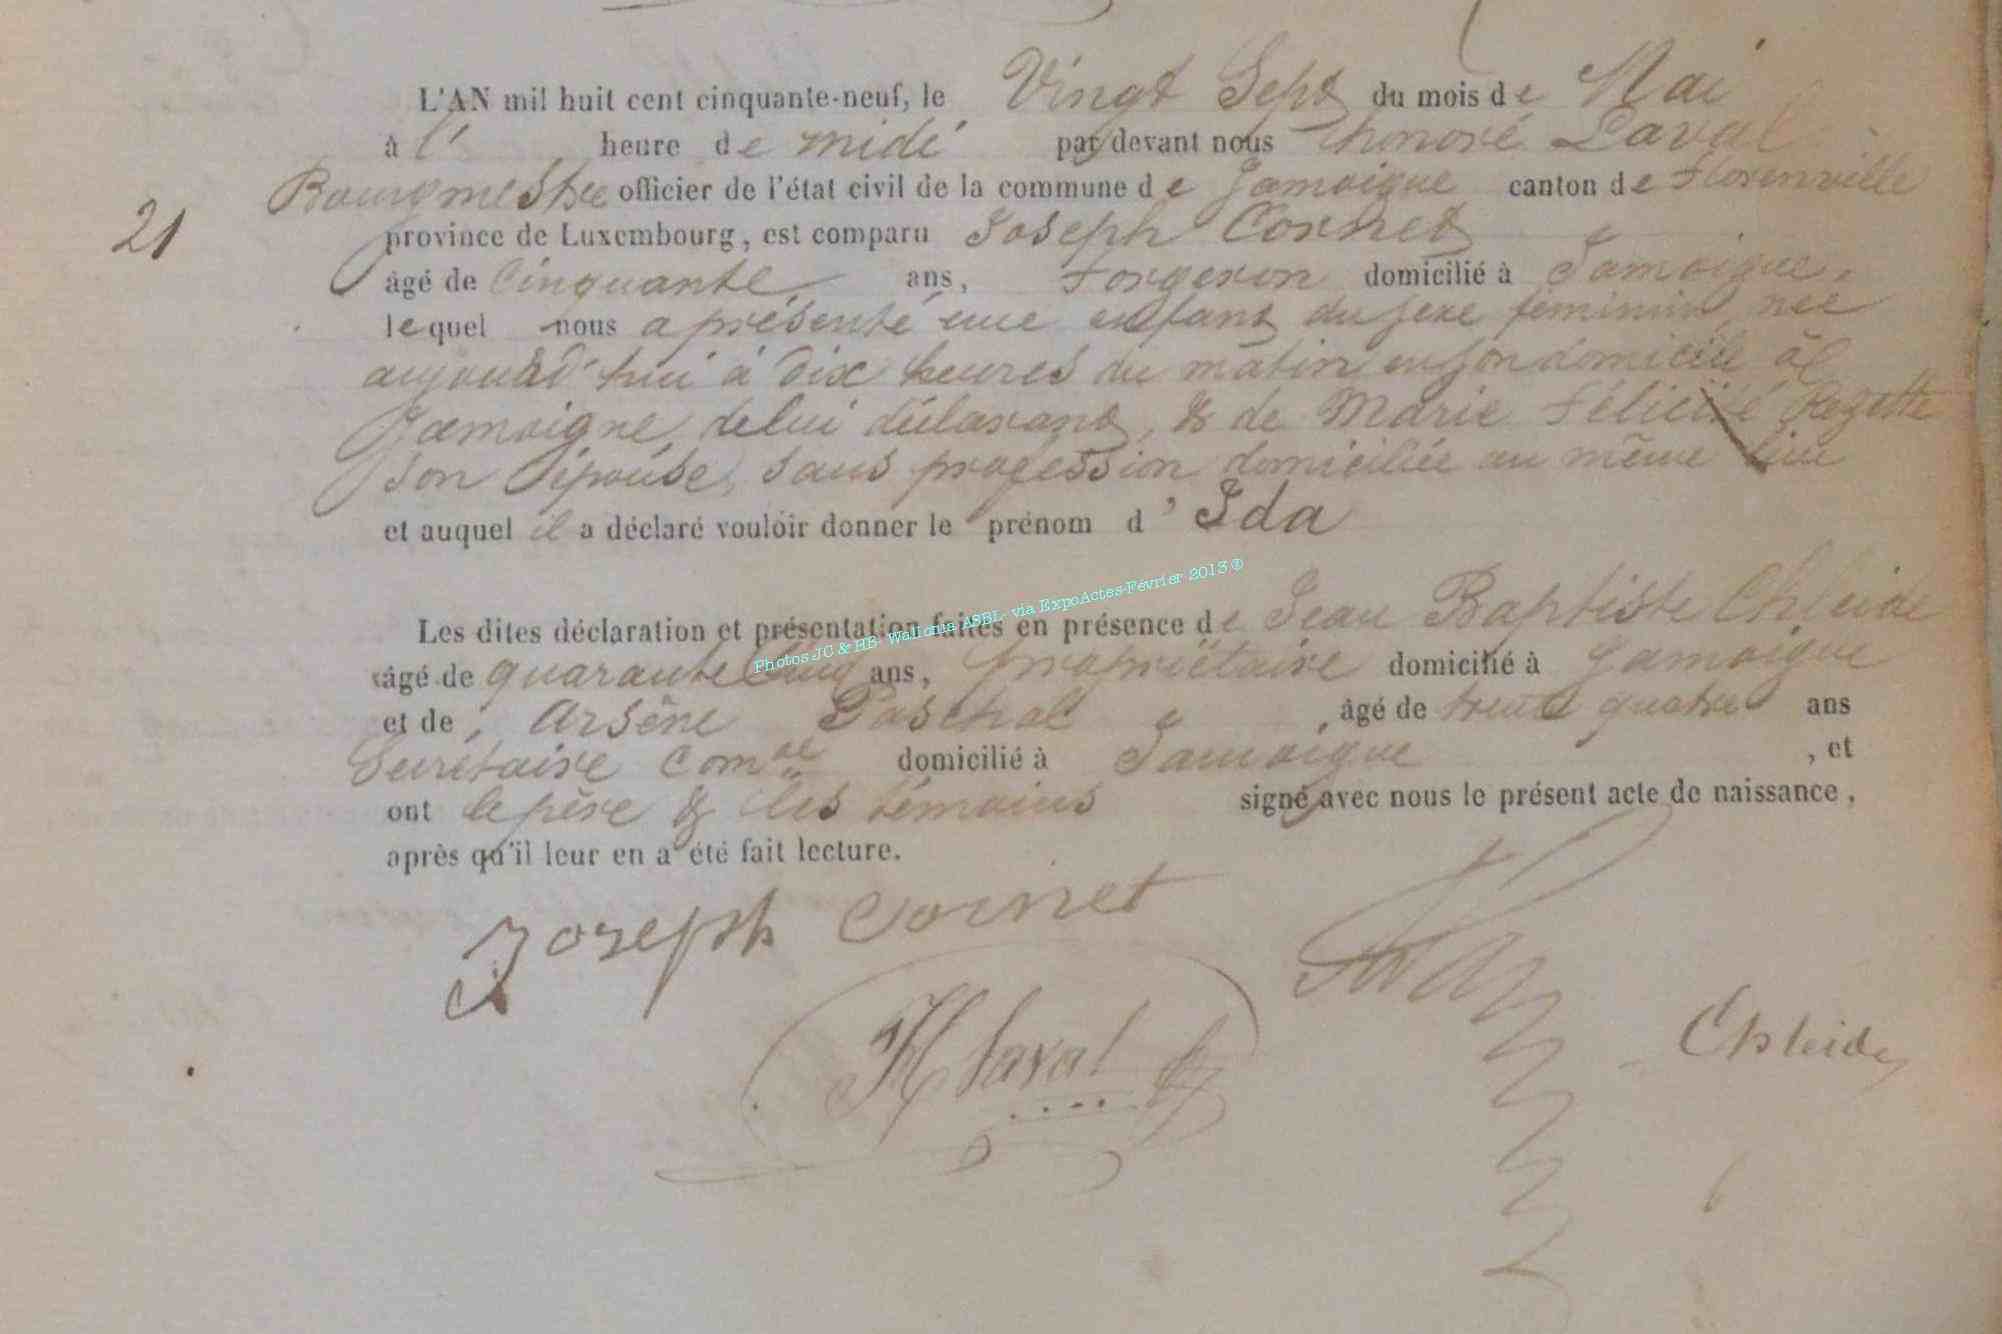 L'AN mil huit cent cinquante-neuf, le Vingt Sept du mois de Mai
à l' heure de midi par devant nous honoré Laval
Bourgmestre officier de l'état civil de la commune de Jamoigne canton de Florenville
21
province de Luxembourg, est comparu Joseph Cornet
âgé de Cinquante ans, Forgeron domicilié à Jamoigne,
lequel nous a présenté une enfant du sexe féminin, née
aujourd'hui à dix heures du matin en son domicile à
Jamoigne, de lui déclarant, & de Marie Félicité
son épouse, sans profession domiciliée au même lieu
et auquel il a déclaré vouloir donner le prénom d'Ida
Photos JC & HB- Wallonia ASBL- via ExpoActes-Février 2013 ®
Les dites déclaration et présentation faites en présence de Jean Baptiste
âgé de quarante Cinq ans, propriétaire domicilié à Jamoigne
et de, Arsène Paschal, âgé de trente quatre ans
Secrétaire Comal domicilié à Jamoigne, et
ont le père & les témoins signé avec nous le présent acte de naissance,
après qu'il leur en a été fait lecture.
Joseph Cornet
H Laval